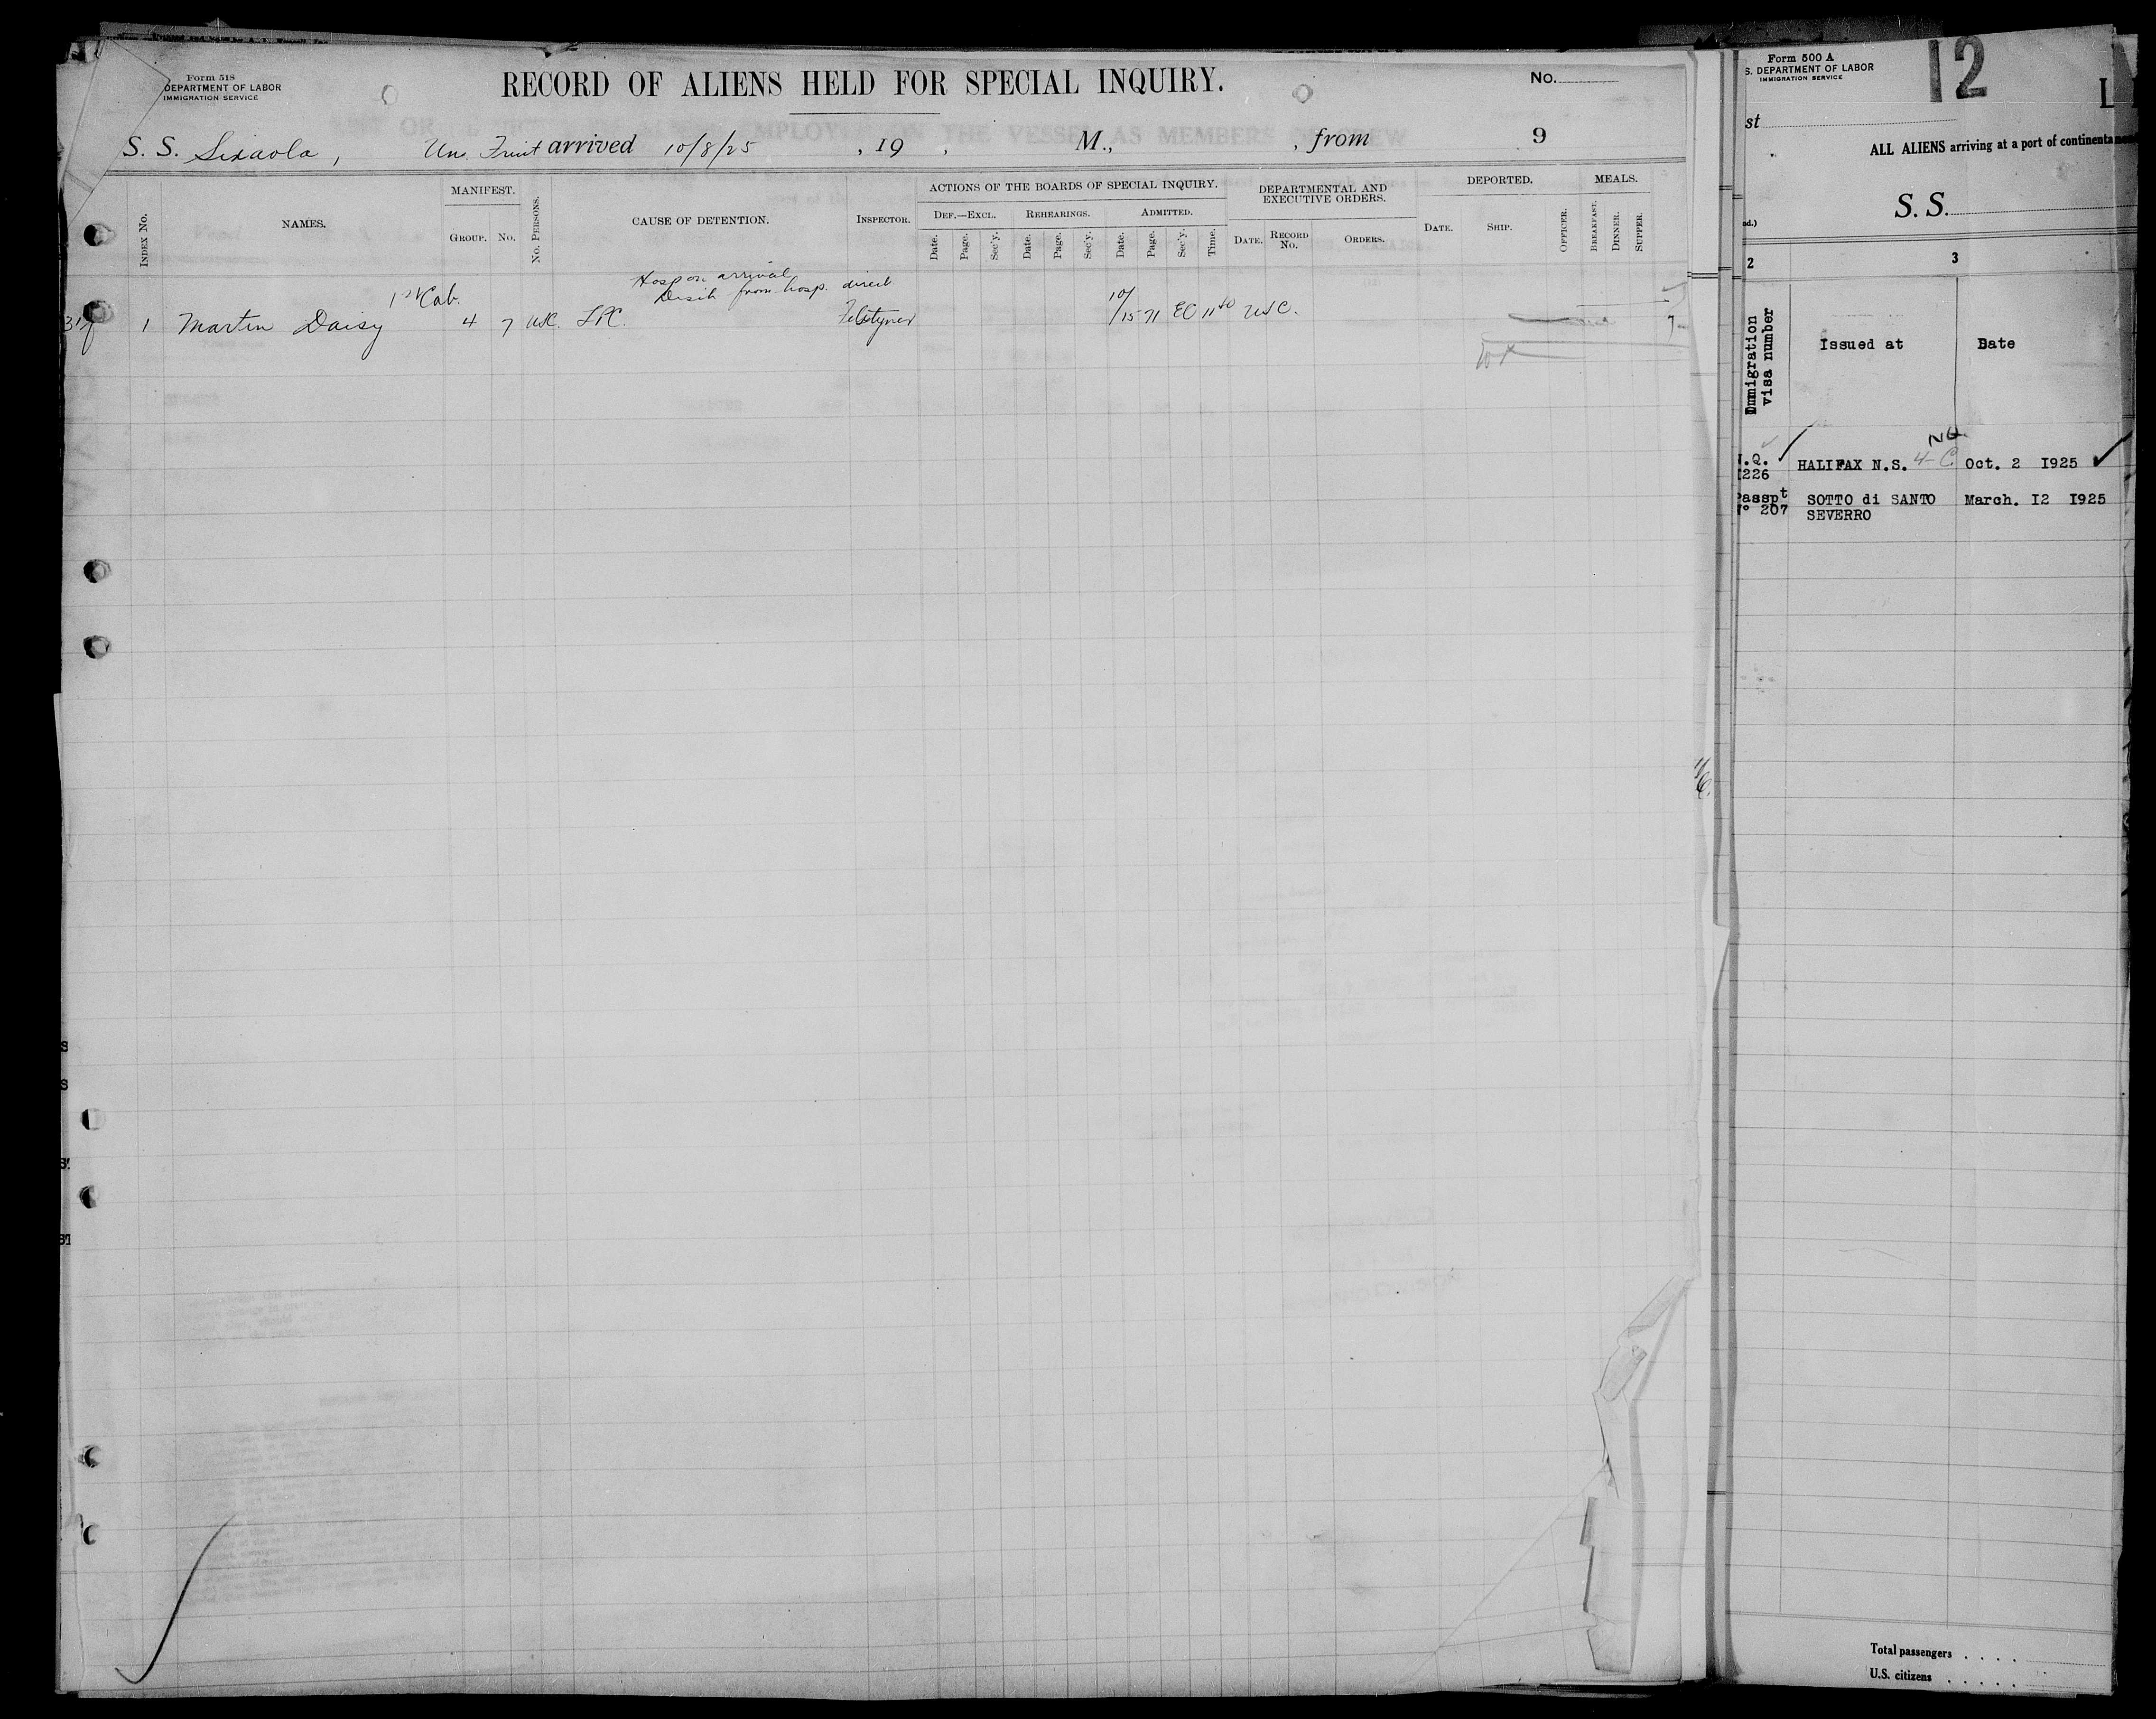 Form 518
DEPARTMENT OF LABOR
IMMIGRATION SERVICE
RECORD OF ALIENS HELD FOR SPECIAL INQUIRY.
No.
S. S. Sixaola, Un. Fruit arrived 10/8/25, 19 , M., , from 9
INDEX No.
NAMES.
MANIFEST.
GROUP. No.
No. PERSONS.
CAUSE OF DETENTION.
INSPECTOR.
ACTIONS OF THE BOARDS OF SPECIAL INQUIRY.
DEF.—EXCL. REHEARINGS. ADMITTED.
Date. Page. Sec'y. Date. Page. Sec'y. Date. Page. Sec'y. Time.
DEPARTMENTAL AND
EXECUTIVE ORDERS.
DATE. RECORD No. ORDERS.
DEPORTED.
DATE. SHIP. OFFICER.
MEALS.
BREAKFAST. DINNER. SUPPER.
Hosp on arrival
from hosp. direct
1st Cab.
1 Martin Daisy 4 7 USC. LPC. 10/15 71 EC 11 40 USC.
Form 500 A
S. DEPARTMENT OF LABOR
IMMIGRATION SERVICE
12
L
st
ALL ALIENS arriving at a port of continenta
S. S.
2 3
Immigration
visa number
Issued at
Date
.Q.
226
HALIFAX N.S. 4-C NQ Oct. 2 1925
Passpt
N° 207
SOTTO di SANTO
SEVERRO
March. 12 1925
Total passengers
U.S. citizens